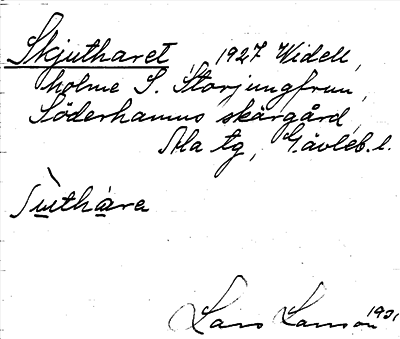 Skjutharet, 1927 Widell,
holme S. Storjungfrun,
Söderhamns skärgård,
Ala tg, Gävleb. l.
Lars Larson